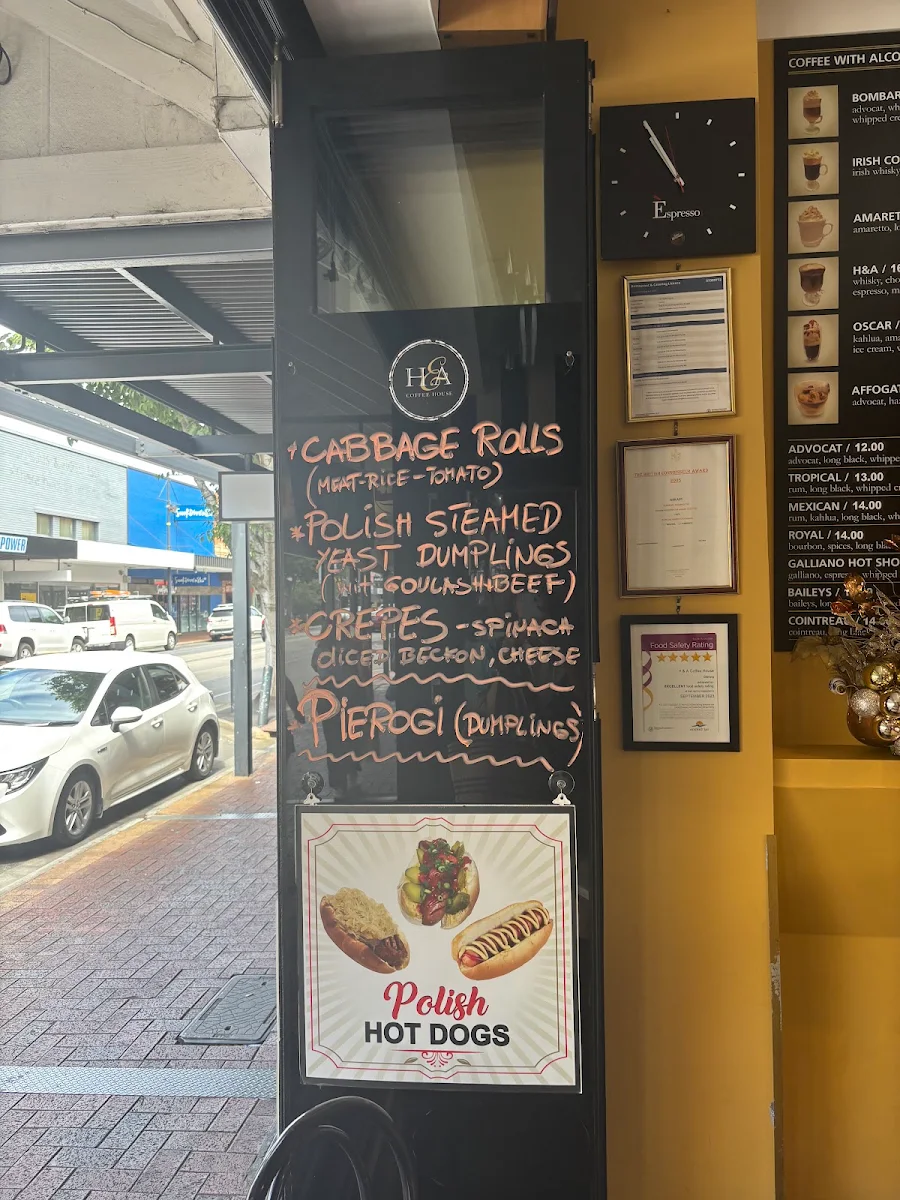 H&A
COFFEE HOUSE
CABBAGE ROLLS
(MEAT-RICE-TOMATO)
*POLISH STEAMED
YEAST DUMPLINGS
GOULASH BEEF)
*CREPES - SPINACH
DICED BECKON, CHEESE
PIEROGI (DUMPLINGS)
Polish
HOT DOGS
Espresso
Food Safety Rating
COFFEE WITH ALCO
BOMBAR
advocat, wh
whipped cre
IRISH CO
irish whisky
AMARET
amaretto, lo
H&A / 16
whisky, cho
espresso, m
OSCAR /
kahlua, ama
ice cream, w
AFFOGAT
advocat, ha
ADVOCAT / 12.00
advocat, long black, whippe
TROPICAL / 13.00
rum, long black, whipped cr
MEXICAN / 14.00
rum, kahlua, long black, wh
ROYAL / 14.00
bourbon, spices, long bla
GALLIANO HOT SHO
galliano, espresso, whipped
BAILEYS /
baileys, lon
COINTREAU / 14
cointreau, long black
POWER